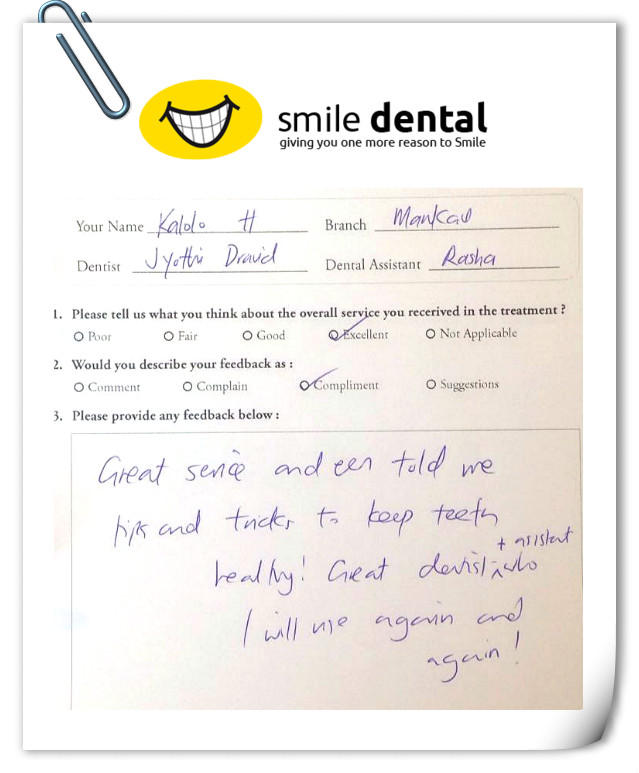 smile dental
giving you one more reason to Smile
Your Name Kalolo H Branch Mankad
Dentist Jyothi Dravid Dental Assistant Rasha
1. Please tell us what you think about the overall service you recerived in the treatment ?
Poor Fair Good Excellent Not Applicable
2. Would you describe your feedback as :
Comment Complain Compliment Suggestions
3. Please provide any feedback below :
Great service and even told me
tips and tricks to keep teeth
healthy! Great dentist + assistant who
I will use again and
again!